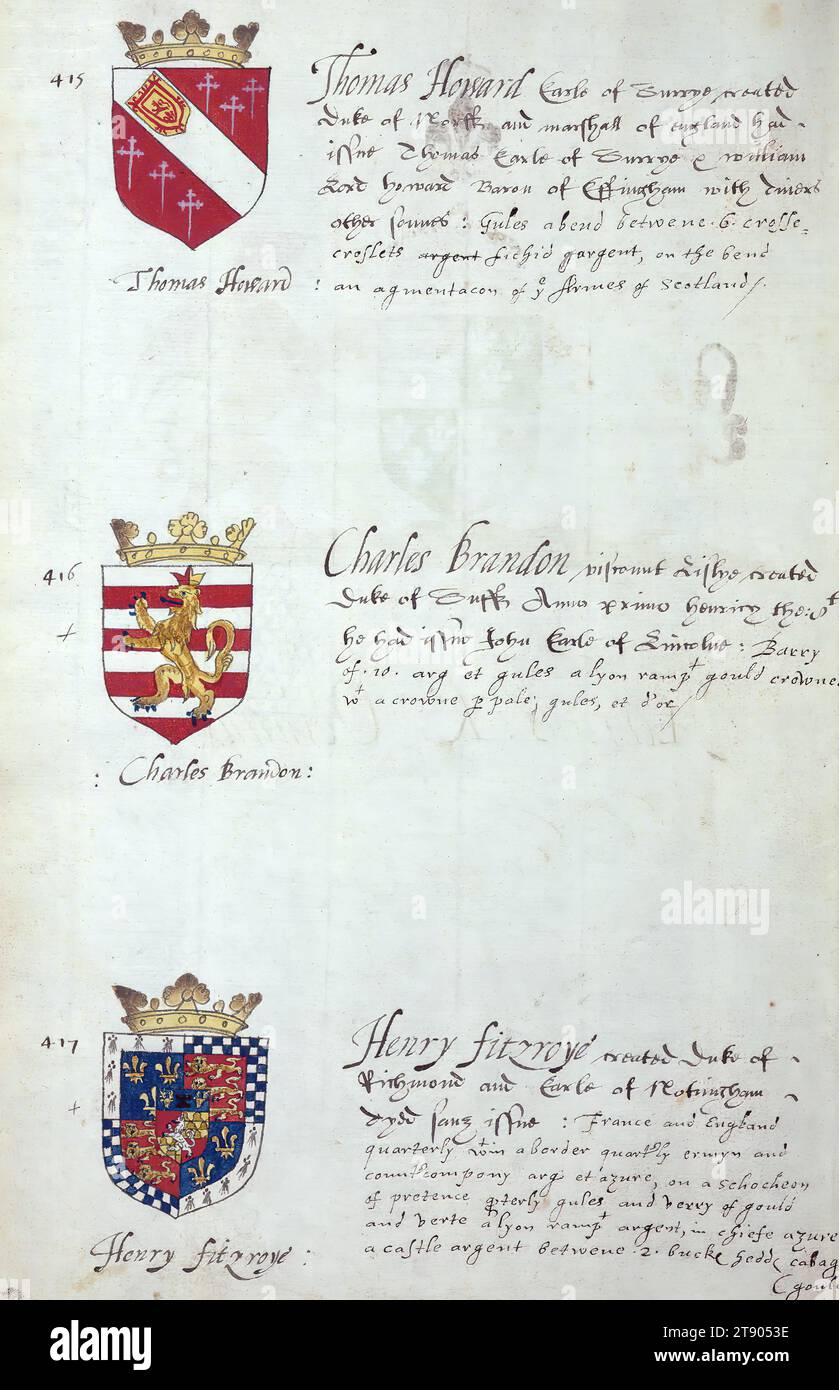 415
Thomas Howard Earle of Surrye created
Duke of Norff and marshall of england had
issue Thomas Earle of Surrye & william
Lord howard Baron of Effingham with divers
other sonnes : Gules a bend betwene .6. crosse=
croslets argent fichid argent, on the bend
: an agmentacon of ye Armes of Scotland/.
Thomas Howard
416
Charles Brandon viscount Lislye created
Duke of Suff Anno primo henricy the
he had issue John Earle of Lincolne : Barry
of .10. arg et gules a lyon rampt gould crowne
wt a crowne p pale, gules, et d'or/
: Charles Brandon :
417
Henry fitzroye created Duke of
Richmond and Earle of Notingham
dyed sanz issue : France and England
quarterly wtin a border quartly ermyn and
countcompony arg et azure, on a schocheon
of pretence qterly gules and verry of gould
and verte a lyon rampt argent, in chiefe azure
a castle argent betwene .2. bucke hedd cabag
(gould
Henry fitzroye :
alamy
alamy
Image ID: 2T9053E
www.alamy.com